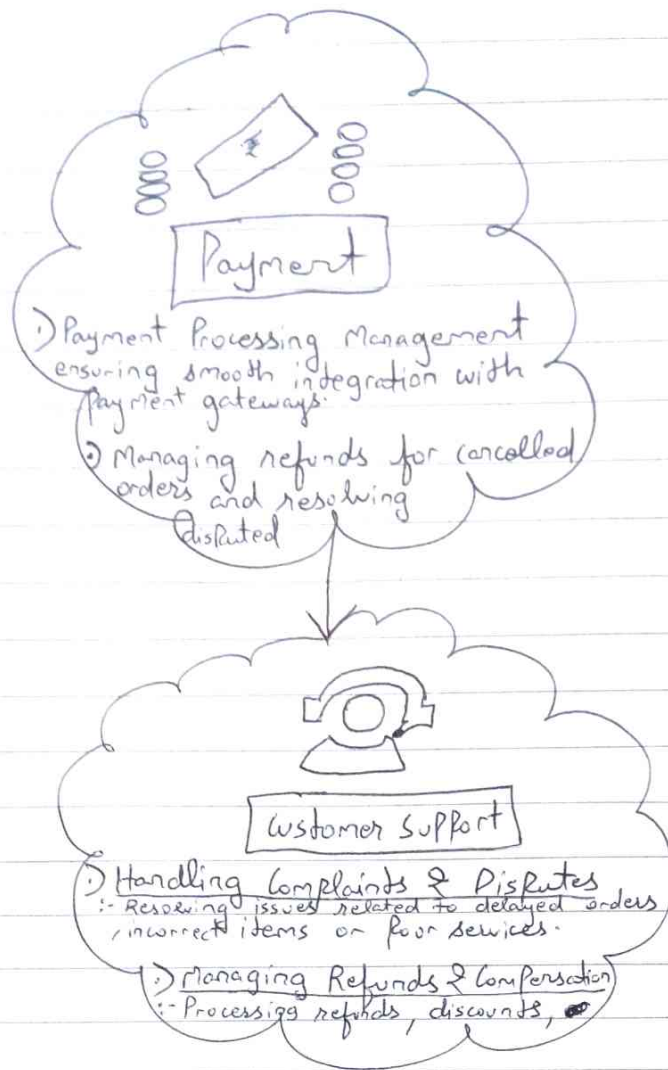 ₹
Payment
·) Payment Processing Management
ensuring smooth integration with
Payment gateways.
·) Managing refunds for cancelled
orders and resolving
disputed
Customer Support
·) Handling Complaints & Disputes
:- Resolving issues related to delayed orders
, incorrect items or Poor services.
·) Managing Refunds & Compensation
:- Processing refunds, discounts,